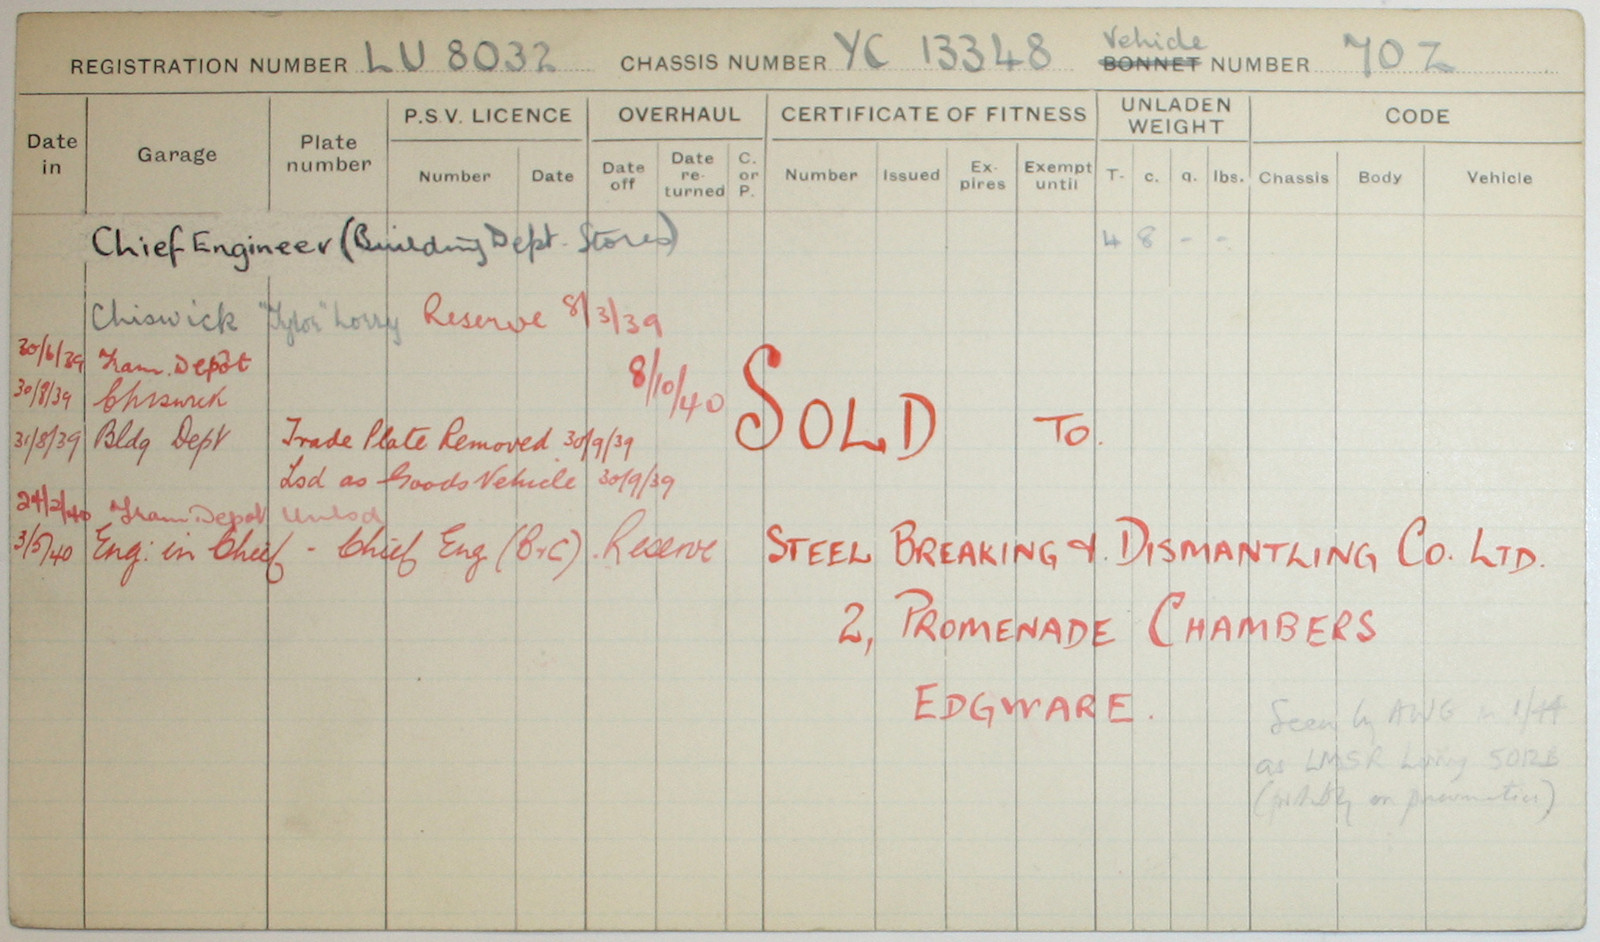 Vehicle
REGISTRATION NUMBER LU 8032 CHASSIS NUMBER YC 13348 BONNET NUMBER 70 Z
Date in Garage Plate number P.S.V. LICENCE OVERHAUL CERTIFICATE OF FITNESS UNLADEN WEIGHT CODE
Number Date Date off Date re-turned C. or P. Number Issued Ex-pires Exempt until T. c. q. lbs. Chassis Body Vehicle
Chief Engineer (Building Dept. Stores) 4 8 - -
Chiswick "Tylor" Lorry Reserve 8/3/39
30/6/39 Tram. Depôt
30/8/39 Chiswick 8/10/40 SOLD TO.
31/8/39 Bldg Dept Trade Plate Removed 30/9/39
Lsd as Goods Vehicle 30/9/39
24/2/40 Tram. Depot Unlsd
3/5/40 Eng: in Chief - Chief Eng (B+C). Reserve STEEL BREAKING & DISMANTLING CO. LTD.
2, PROMENADE CHAMBERS
EDGWARE.
Seen by AWG in 1/44
as LMSR Lorry
(probably on pneumatics)